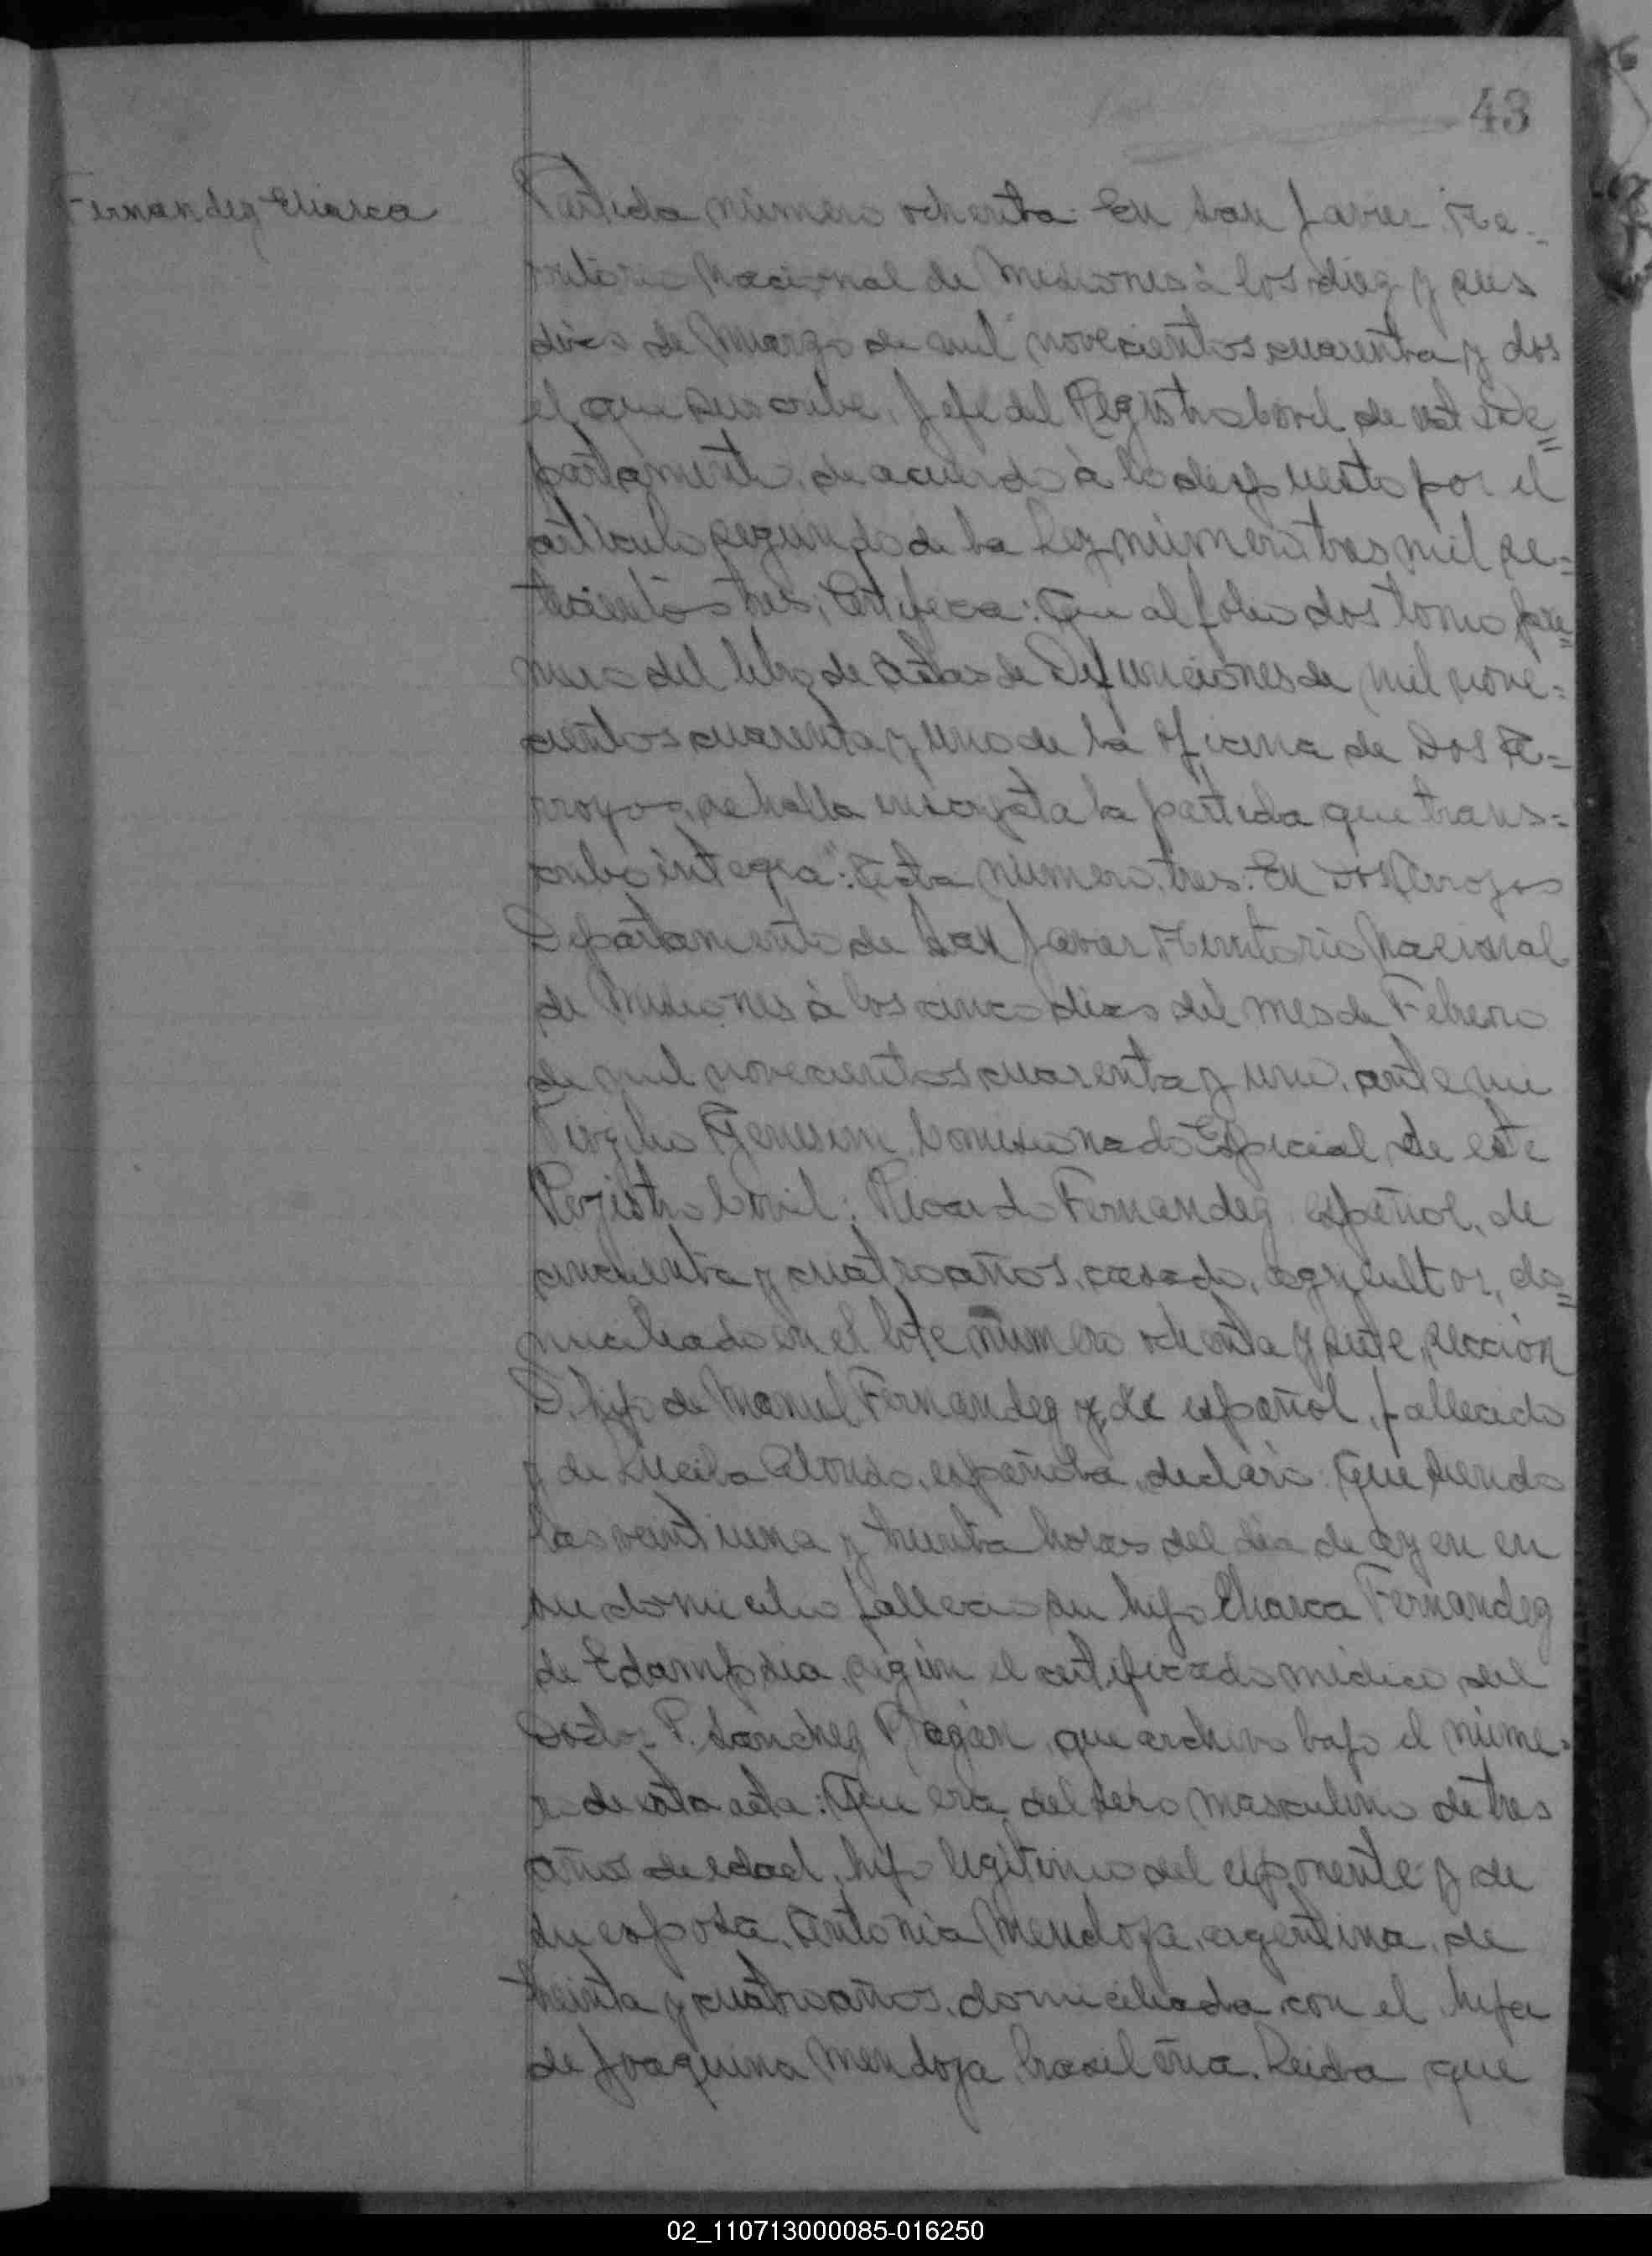 43
Fernandez Eliasca
Partida número ochenta. En San Javier Te-
rritorio Nacional de Misiones á los diez y seis
dias de Marzo de mil novecientos cuarenta y dos
el que suscribe, Jefe del Registro Civil de este De=
partamento, de acuerdo á lo dispuesto por el
artículo segundo de la Ley número tres mil se=
tecientos tres; Certifica: Que al folio dos tomo pri=
mero del libro de Actas de Defunciones de mil nove=
cientos cuarenta y uno de la oficina de Dos A=
rroyos, se halla inscripta la partida que trans=
cribo integra": Acta número tres: En Dos Arroyos
Departamento de San Javier, Territorio Nacional
de Misiones á los cinco dias del mes de Febrero
de mil novecientos cuarenta y uno, ante mi
Virgilio Comisionado Especial de este
Registro Civil; Ricardo Fernandez español, de
cincuenta y cuatro años, casado, agricultor, do=
miciliado en el lote número ochenta y siete, sección
D, hijo de Manuel Fernandez y de español, fallecido
y de Lucila Alonso, española, declaró: Que siendo
las veintiuna y treinta horas del dia de ayer en
su domicilio falleció su hijo Fernandez
de Eclampsia, según el certificado médico del
Doctor P. Sánchez Pagán, que archivo bajo el núme=
ro de esta acta: Que era del sexo masculino de tres
años de edad, hijo legítimo del exponente y de
su esposa, Antonia Mendoza, argentina, de
treinta y cuatro años, domiciliada con el, hija
de Joaquina Mendoza, brasileña. Leida que
02_110713000085-016250